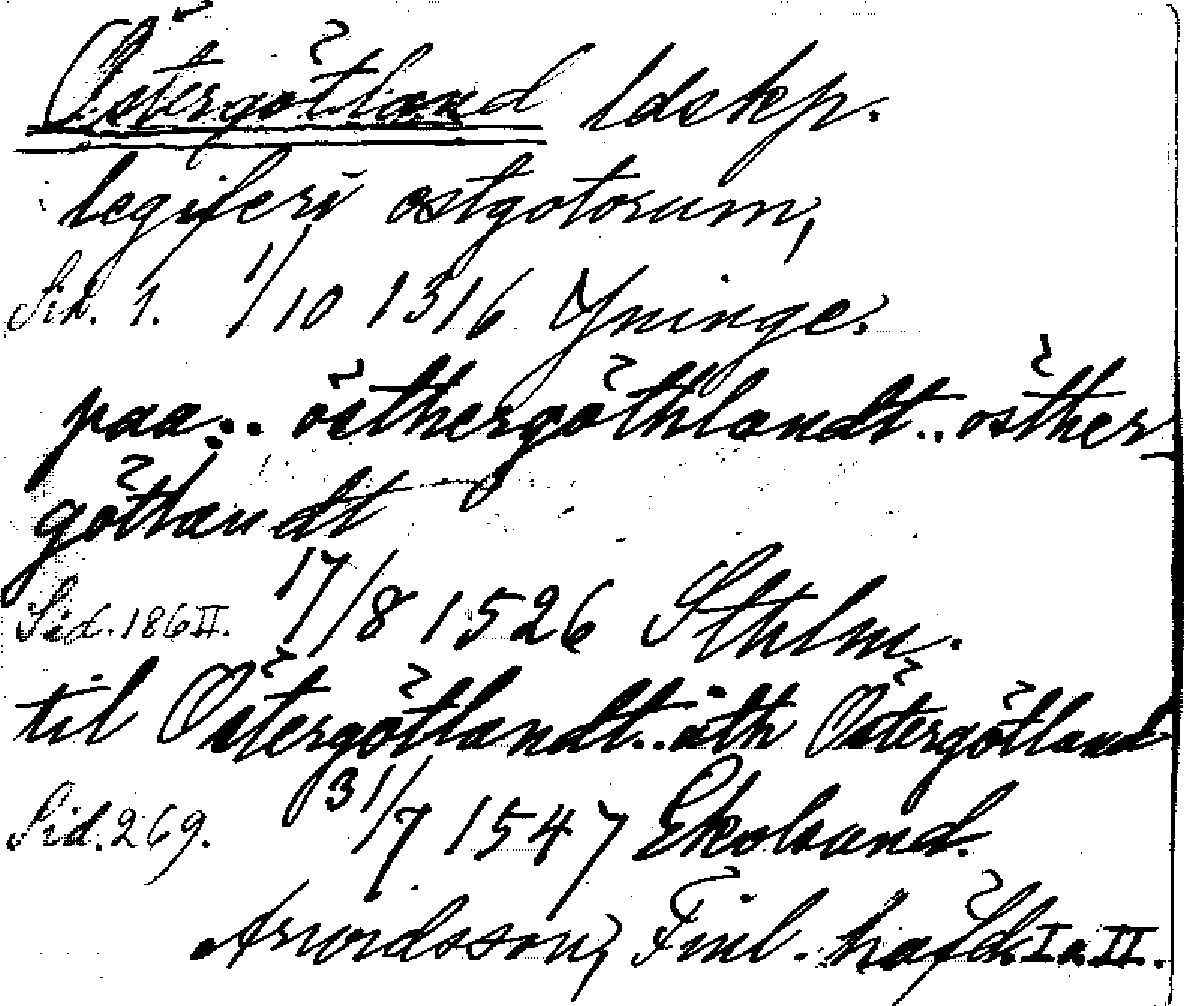 Östergötland ldskp.
legiferi ostgotorum,
Sid. 1. 1/10 1316 Yninge.
paa.. östhergöthlandt.. östher-
götlandt
Sid. 186 II. 17/8 1526 Sthlm.
til Östergötlandt.. åth Östergötland
Sid. 269. 31/7 1547 Ekolsund.
Arwidsson, Finl. häfd. I o. II.